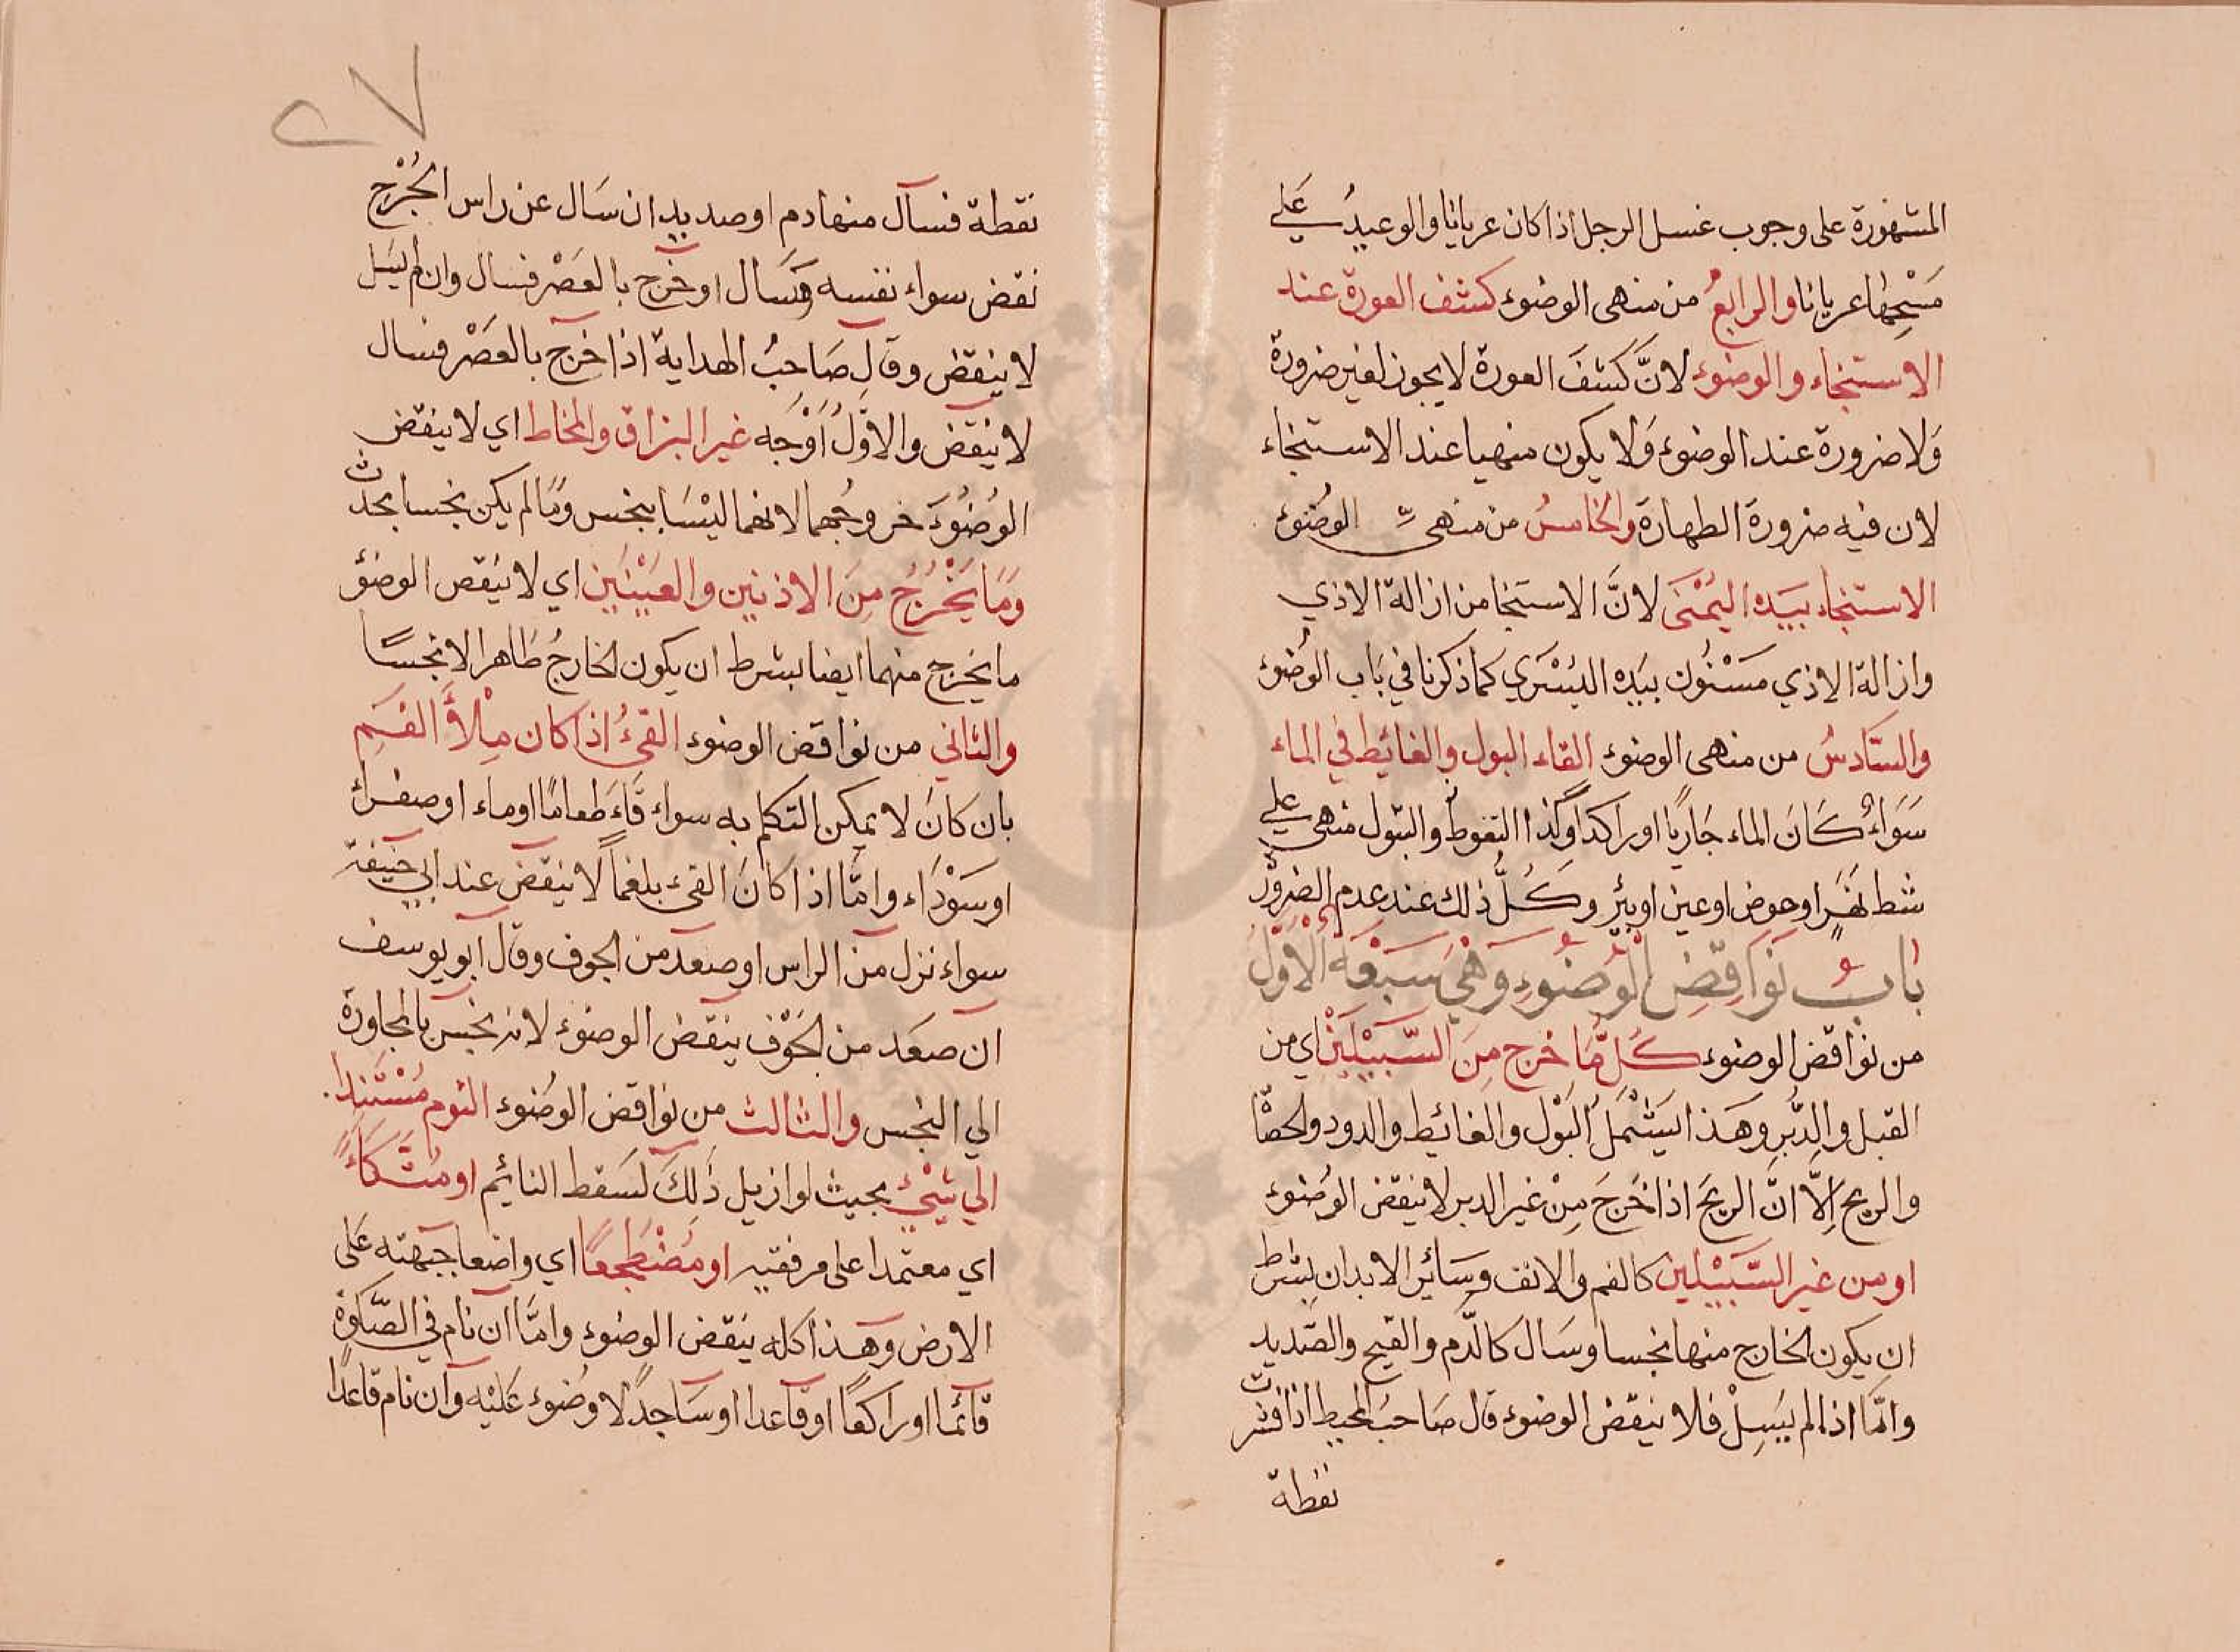 المشهورة على وجوب غسل الرجل اذا كان عريانا والوعيدُ علي
مَسْحِهَا عريانا والرابعُ من منهى الوضوء كشف العورة عند
الاستنجاء والوضوء لانَّ كَشْفَ العورة لا يجوز لغير ضرورة
وَلا ضرورة عند الوضوء وَلا يكون منهيا عند الاستنجاء
لان فيه ضرورة الطهارة والخامسُ من منهى الوضوء
الاستنجاء بيَده اليُمْنَى لانَّ الاستنجا من ازالة الاذي
وازالة الاذي مَسْنُون بيَده اليُسْرَي كما ذكرنا في بَاب الوضوء
والسَّادسُ من منهى الوضوء القاء البول والغائط في الماء
سَوَاءٌ كَانَ الماء جَاريًا او راكدا وكذا التغوط والبَول منهى علي
شط نَهَرٍ او حوض او عين او بئر وكُلُّ ذلك عند عدم الضرورة
بابُ نوَاقِضِ الوُضُوءِ وَهْيَ سَبْعَة الاوَّلُ
من نواقض الوضوء كُلُّ مَا خرج مِنَ السَّبِيْلَيْنِ اي من
القبل والدُّبرِ وهَذا يَشْمَلُ البَوْل والغائط والدود والحصَا
والريح اِلَّا انَّ الريحَ اذا خَرَجَ مِنْ غير الدبر لا ينقض الوُضوء
او من غير السَّبِيْلين كالفم والانف وسَائر الابدان بشرط
ان يكون الخارج منها نجسا وسَال كالدَّم والقيح والصَّديد
وامَّا اذا لم يَسِلْ فلا ينقض الوضوء قال صَاحبُ المحيط اذا قشرت
نقطة
٢٧
نقطة فسال منها دم او صديد ان سَال عن راس الجُرْح
نقض سواء نفسه سَال او خرج بالعَصْر فسال وان لم يَسَل
لا ينقض وقال صَاحبُ الهداية اذا خرج بالعَصْر فسال
لا ينقض والاوّلُ اَوْجَه غير البزاق والمخاط اي لا ينقض
الوُضُوَء خروجُهما لانهما ليْسَا بنجس وَمَا لم يكن نجسا بحدث
وَمَا يَخْرُجُ مِنَ الاذنين والعَيْنَين اي لا ينقض الوضؤ
ما يَخرج منهما ايضا بشرط ان يكون الخارجُ طَاهرا لا نجسًا
والثاني من نواقض الوضوء القئُ اذا كان مِلْأَ الفَمِ
بان كَانَ لا يمكن التكلم به سواء قَاءَ طعامًا او ماء او صفراءً
او سَوْدَاء وامَّا اذا كَانَ القئ بلغماً لا ينقض عند ابي حنيفة
سواء نزل من الراس او صعد من الجوف وقال ابو يوسف
ان صعَد من الجَوْف ينقض الوضوء لانه نجس بالمجاورة
الي النجس والثالث من نواقض الوُضوء النوم مُسْتَنِدا
الي شيْئٍ بحيث لو ازيل ذَلكَ لسَقط النايم او متَّكاءً
اي معتمدا على مرفقيه او مُضْطَجِعًا اي واضعا جبهته عَلى
الارض وهَذا كله ينقض الوضوء وامَّا ان نام في الصَّلوة
قائما او راكعًا او قاعدا او سَاجدًا لا وُضوء عَليْه وان نام قاعدًا